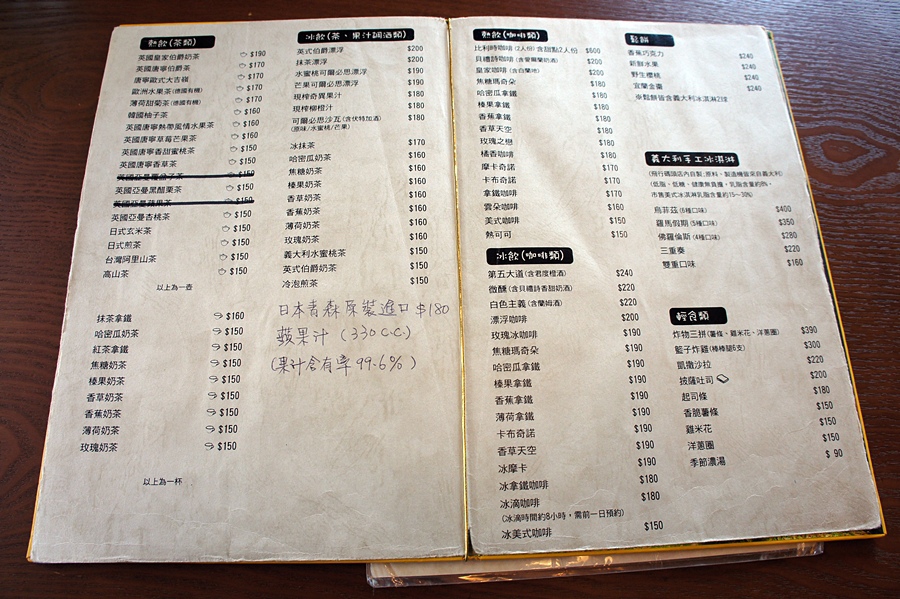 熱飲(茶類)
英國皇家伯爵奶茶 $190
英國唐寧伯爵茶 $170
唐寧歐式大吉嶺 $170
歐洲水果茶(德國有機) $170
薄荷甜菊茶(德國有機) $160
韓國柚子茶 $160
英國唐寧熱帶風情水果茶 $160
英國唐寧草莓芒果茶 $150
英國唐寧香甜蜜桃茶 $150
英國唐寧香草茶 $150
英國亞曼覆盆子茶 $150
英國亞曼黑醋栗茶 $150
英國亞曼蘋果茶 $150
英國亞曼杏桃茶 $150
日式玄米茶 $150
日式煎茶 $150
台灣阿里山茶 $150
高山茶 $150
以上為一壺
抹茶拿鐵 $160
哈密瓜奶茶 $150
紅茶拿鐵 $150
焦糖奶茶 $150
榛果奶茶 $150
香草奶茶 $150
香蕉奶茶 $150
薄荷奶茶 $150
玫瑰奶茶 $150
以上為一杯
冰飲(茶、果汁調酒類)
英式伯爵漂浮 $200
抹茶漂浮 $200
水蜜桃可爾必思漂浮 $190
芒果可爾必思漂浮 $190
現榨奇異果汁 $180
現榨柳橙汁 $180
可爾必思沙瓦(含伏特加酒) $180
(原味/水蜜桃/芒果)
冰抹茶 $170
哈密瓜奶茶 $160
焦糖奶茶 $160
榛果奶茶 $160
香草奶茶 $160
香蕉奶茶 $160
薄荷奶茶 $160
玫瑰奶茶 $160
義大利水蜜桃茶 $150
英式伯爵奶茶 $150
冷泡煎茶 $150
日本青森原裝進口 $180
蘋果汁 (330c.c.)
(果汁含有率99.6%)
熱飲(咖啡類)
比利時咖啡(2人份)含甜點2人份 $600
貝禮詩咖啡(含愛爾蘭奶酒) $200
皇家咖啡(含白蘭地) $200
熱焦糖瑪奇朵 $180
哈密瓜拿鐵 $180
榛果拿鐵 $180
香蕉拿鐵 $180
香草天空 $180
玫瑰之戀 $180
橘香咖啡 $180
摩卡奇諾 $170
卡布奇諾 $170
拿鐵咖啡 $170
雲朵咖啡 $160
美式咖啡 $150
熱可可 $150
冰飲(咖啡類)
第五大道(含君度橙酒) $240
微醺(含貝禮詩香甜奶酒) $220
白色主義(含蘭姆酒) $220
漂浮咖啡 $200
玫瑰冰咖啡 $190
焦糖瑪奇朵 $190
哈密瓜拿鐵 $190
榛果拿鐵 $190
香蕉拿鐵 $190
薄荷拿鐵 $190
卡布奇諾 $190
香草天空 $190
冰摩卡 $190
冰拿鐵咖啡 $180
冰滴咖啡 $180
(冰滴時間約8小時，需前一日預約)
冰美式咖啡 $150
鬆餅
香蕉巧克力 $240
新鮮水果 $240
野生櫻桃 $240
宜蘭金棗 $240
※鬆餅皆含義大利冰淇淋2球
義大利手工冰淇淋
(飛行碼頭店內自製;原料、製造機皆來自義大利)
(低脂、低糖、健康無負擔，乳脂含量約8%，
市售美式冰淇淋乳脂含量約15～30%)
烏菲茲(6種口味) $400
羅馬假期(5種口味) $350
佛羅倫斯(4種口味) $280
三重奏 $220
雙重口味 $160
輕食類
炸物三拼(薯條、雞米花、洋蔥圈) $390
籃子炸雞(棒棒腿6支) $300
凱撒沙拉 $220
披薩吐司 $200
起司條 $180
香脆薯條 $150
雞米花 $150
洋蔥圈 $150
季節濃湯 $ 90